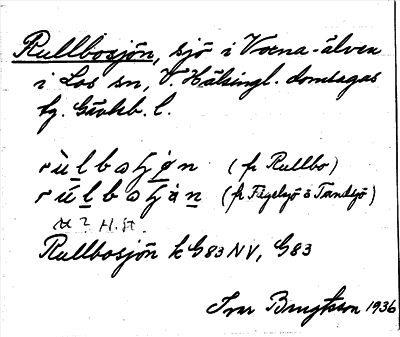 Rullbosjön, sjö i Voxna-älven
i Los sn, V. Hälsingl. domsagas
tg. Gävleb. l.
(fr Rullbo)
(fr Fågelsjö o Tandsjö)
? H. St.
Rullbosjön k G83 NV, G83
Ivar Bengtsson 1936